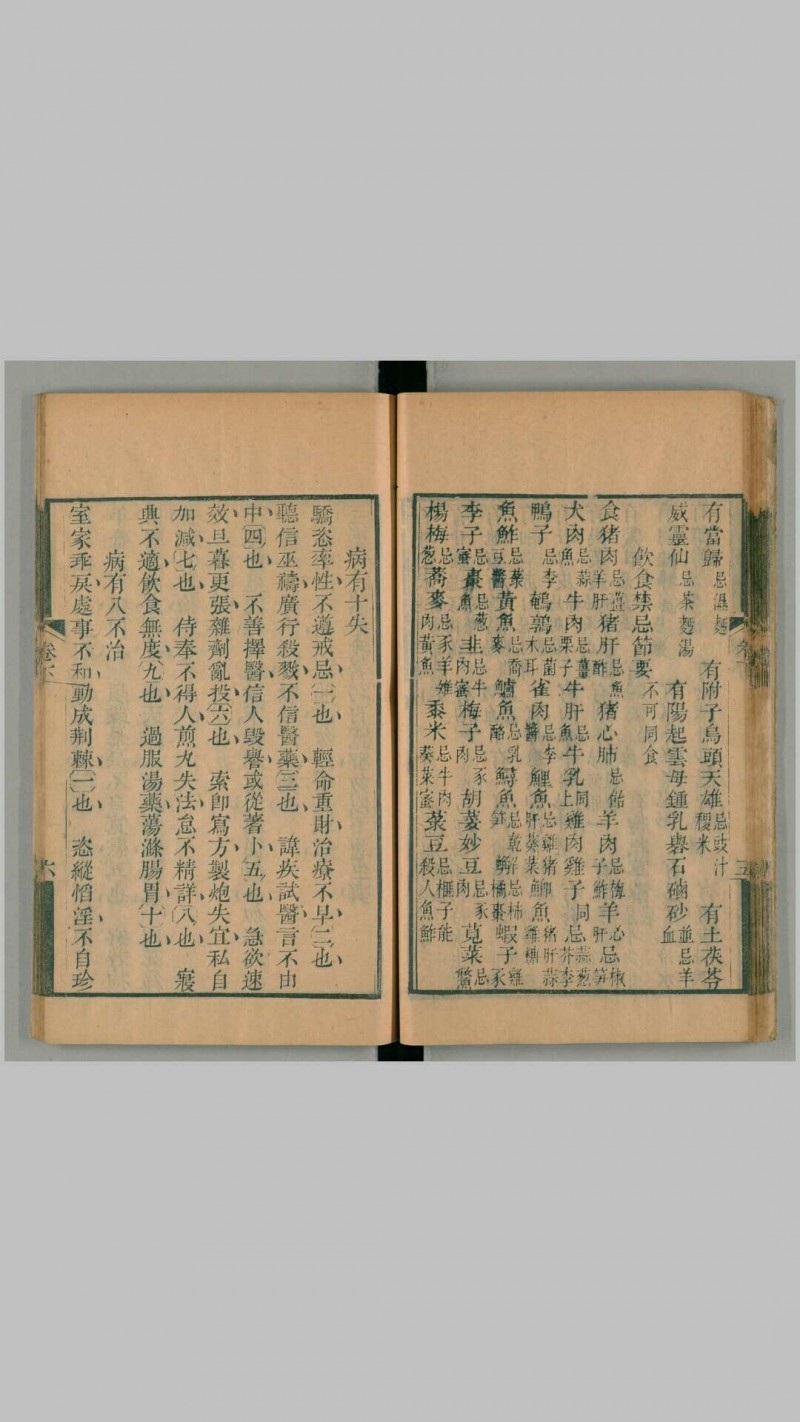 有當歸忌濕麵 有附子烏頭天雄忌豉汁稷米 有土茯苓
威靈仙忌茶麵湯 有陽起雲母鍾乳礜石硇砂並忌羊血
飲食禁忌節要不可同食
食猪肉忌薑羊肝 猪肝忌魚酢 猪心肺忌飴 羊肉忌梅子酢 羊心肝忌椒笋
犬肉忌蒜魚 牛肉忌薑栗子 牛肝忌魚 牛乳同上 雞肉雞子同忌蒜葱芥李
鴨子忌李 鵪鶉忌菌木耳 雀肉忌李醬 鯉魚忌雞猪肝葵菜 魚猪肝蒜雞糖
魚鮓忌菜豆醬 黃魚忌喬麥 鱸魚忌乳酪 鱘魚忌乾笋 蟹忌柿橘棗 蝦子雞豕
李子忌蜜 棗忌葱魚 韭忌牛肉蜜 梅子忌豕肉 胡荽 妙豆忌豕肉 莧菜忌鱉
楊梅忌葱 蕎麥忌豕羊雉肉黃魚 黍米忌牛肉葵菜蜜 菉豆忌榧子能殺人魚鮓
卷下
五
病有十失
驕恣率性不遵戒忌一也 輕命重財治療不早二也
聽信巫禱廣行殺戮不信醫藥三也 諱疾試醫言不由
中四也 不善擇醫信人毀譽或從蓍卜五也 急欲速
效旦暮更張雜劑亂投六也 索卽寫方製炮失宜私自
加減七也 侍奉不得人煎丸失法怠不精詳八也 寢
興不適飲食無度九也 過服湯藥蕩滌腸胃十也
病有八不治
室家乖戾處事不和動成荆棘一也 恣縱慆淫不自珍
卷下
六